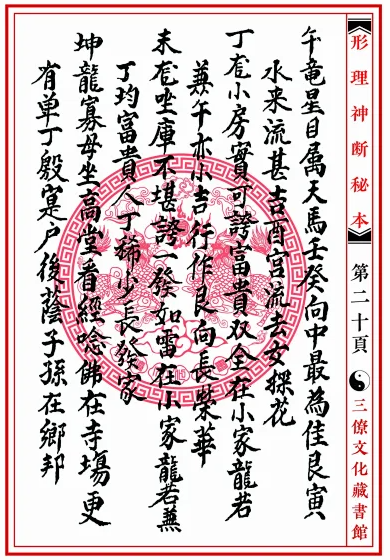 形理神断秘本
第二十頁
三僚文化藏書館
午竜星目属天馬壬癸向中最為佳艮寅
水来流甚吉酉宫流去女探花
丁龙小房實可誇富貴双全在小家龍若
兼午亦小吉行作艮向長榮華
未龙坐庫不堪誇一發如雷在小家龍若兼
丁均富貴人丁稀少長發家
坤龍寡母坐高堂看經唸佛在寺場更
有单丁殷寔户後蔭子孫在鄉邦